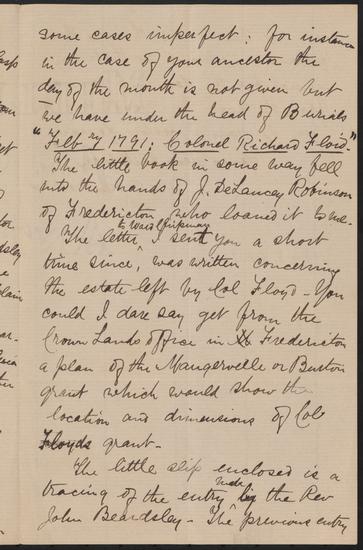 some cases imperfect: for instance
in the case of your ancestor the
day of the month is not given but
we have under the head of Burials
"Feb ry 1791; Colonel Richard Floid."
The little book in some way fell
into the hands of J. DeLancey Robinson
of Fredericton who loaned it to me.
to Ward Chipman
The letter, I sent you a short
time since, was written concerning
the estate left by Col Floyd - You
could I dare say get from the
Crown Lands office in Fredericton
a plan of the Maugerville or Burton
grant which would show the
location and dimensions of Col
Floyds grant -
The little slip enclosed is a
made
tracing of the entry by the Rev
John Beardsley - The previous entry